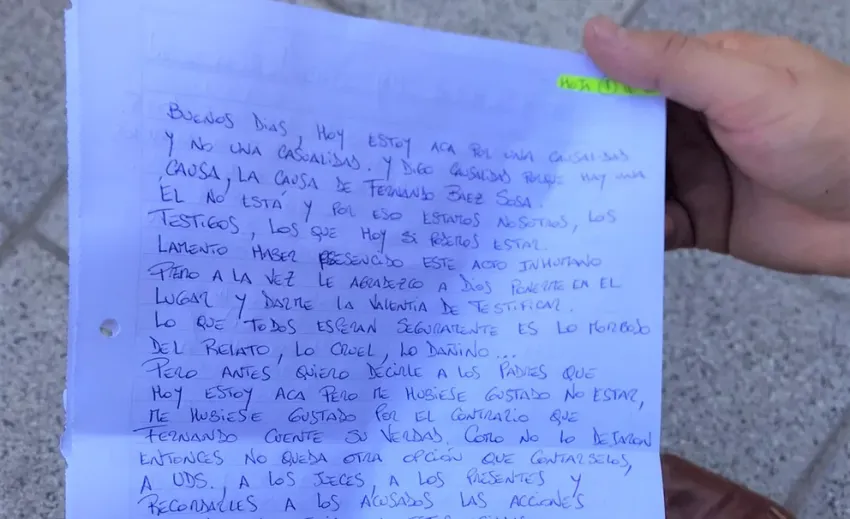 HOJA (1)
BUENOS DIAS, HOY ESTOY ACA POR UNA CAUSALIDAD
Y NO UNA CASUALIDAD. Y DIGO CAUSALIDAD PORQUE HAY UNA
CAUSA, LA CAUSA DE FERNANDO BAEZ SOSA.
EL NO ESTÁ Y POR ESO ESTAMOS NOSOTROS, LOS
TESTIGOS, LOS QUE HOY SI PODEMOS ESTAR.
LAMENTO HABER PRESENCIDO ESTE ACTO INHUMANO
PERO A LA VEZ LE AGRADEZCO A DIOS PONERME EN EL
LUGAR Y DARME LA VALENTIA DE TESTIFICAR.
LO QUE TODOS ESPERAN SEGURAMENTE ES LO MORBOSO
DEL RELATO, LO CRUEL, LO DAÑINO...
PERO ANTES QUIERO DECIRLE A LOS PADRES QUE
HOY ESTOY ACA PERO ME HUBIESE GUSTADO NO ESTAR,
ME HUBIESE GUSTADO POR EL CONTRARIO QUE
FERNANDO CUENTE SU VERDAD. COMO NO LO DEJARON
ENTONCES NO QUEDA OTRA OPCIÓN QUE CONTARSELOS,
A UDS., A LOS JUECES, A LOS PRESENTES Y
RECORDARLES A LOS ACUSADOS LAS ACCIONES